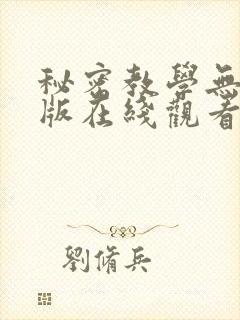 秘密教學無
版在綫觀看
劉脩兵